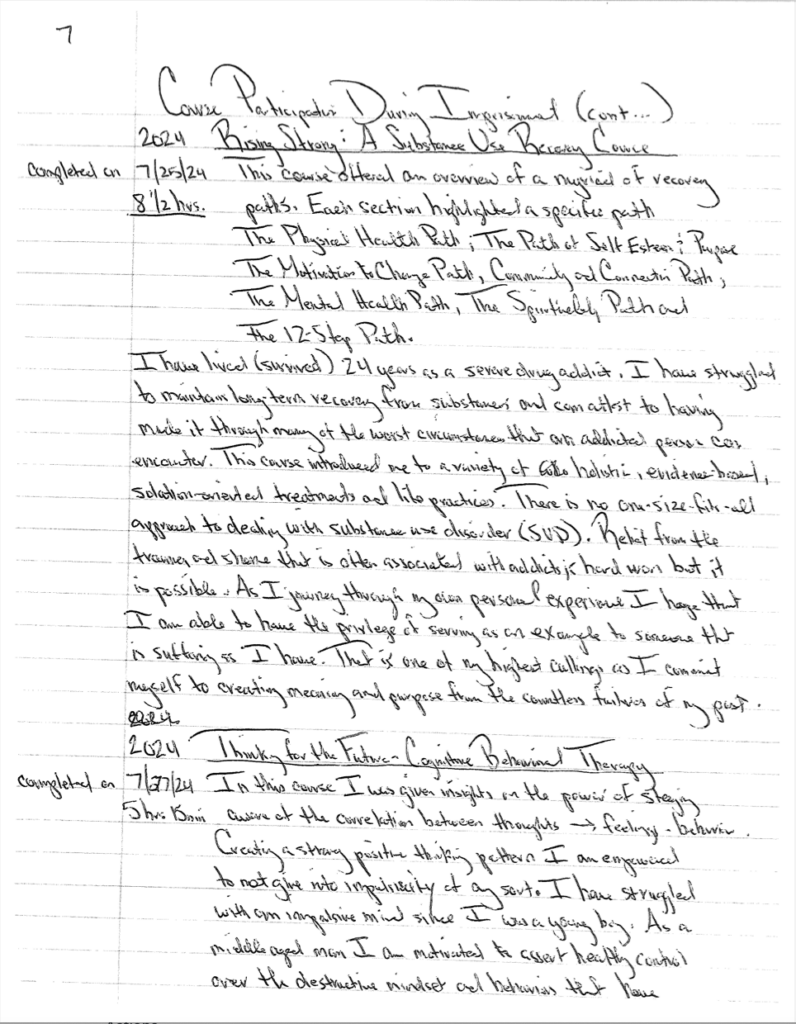 7
Course Participation During Imprisonment (cont...)
2024 Rising Strong: A Substance Use Recovery Course
completed on 7/25/24 This course offered an overview of a myriad of recovery
8 1/2 hrs. paths. Each section highlighted a specific path
The Physical Health Path; The Path of Self Esteem & Purpose
The Motivation to Change Path, Community and Connection Path,
The Mental Health Path, The Spirituality Path and
the 12-Step Path.
I have lived (survived) 24 years as a severe drug addict. I have struggled
to maintain long term recovery from substances and can attest to having
made it through many of the worst circumstances that an addicted person can
encounter. This course introduced me to a variety of holistic, evidence-based,
solution-oriented treatments and life practices. There is no one-size-fits-all
approach to dealing with substance use disorder (SUD). Relief from the
trauma and shame that is often associated with addicts is hard won but it
is possible. As I journey through my own personal experience I hope that
I am able to have the privilege of serving as an example to someone tht
is suffering as I have. That is one of my highest callings as I commit
myself to creating meaning and purpose from the countless failures of my past.
2024
2024 Thinking for the Future - Cognitive Behavioral Therapy
completed on 7/27/24 In this course I was given insights on the power of staying
5 hrs 15 min aware of the correlation between thoughts → feelings - behavior.
Creating a strong positive thinking pattern I am empowered
to not give into impulsivity of any sort. I have struggled
with an impulsive mind since I was a young boy. As a
middle aged man I am motivated to assert healthy control
over the destructive mindset and behaviors that have